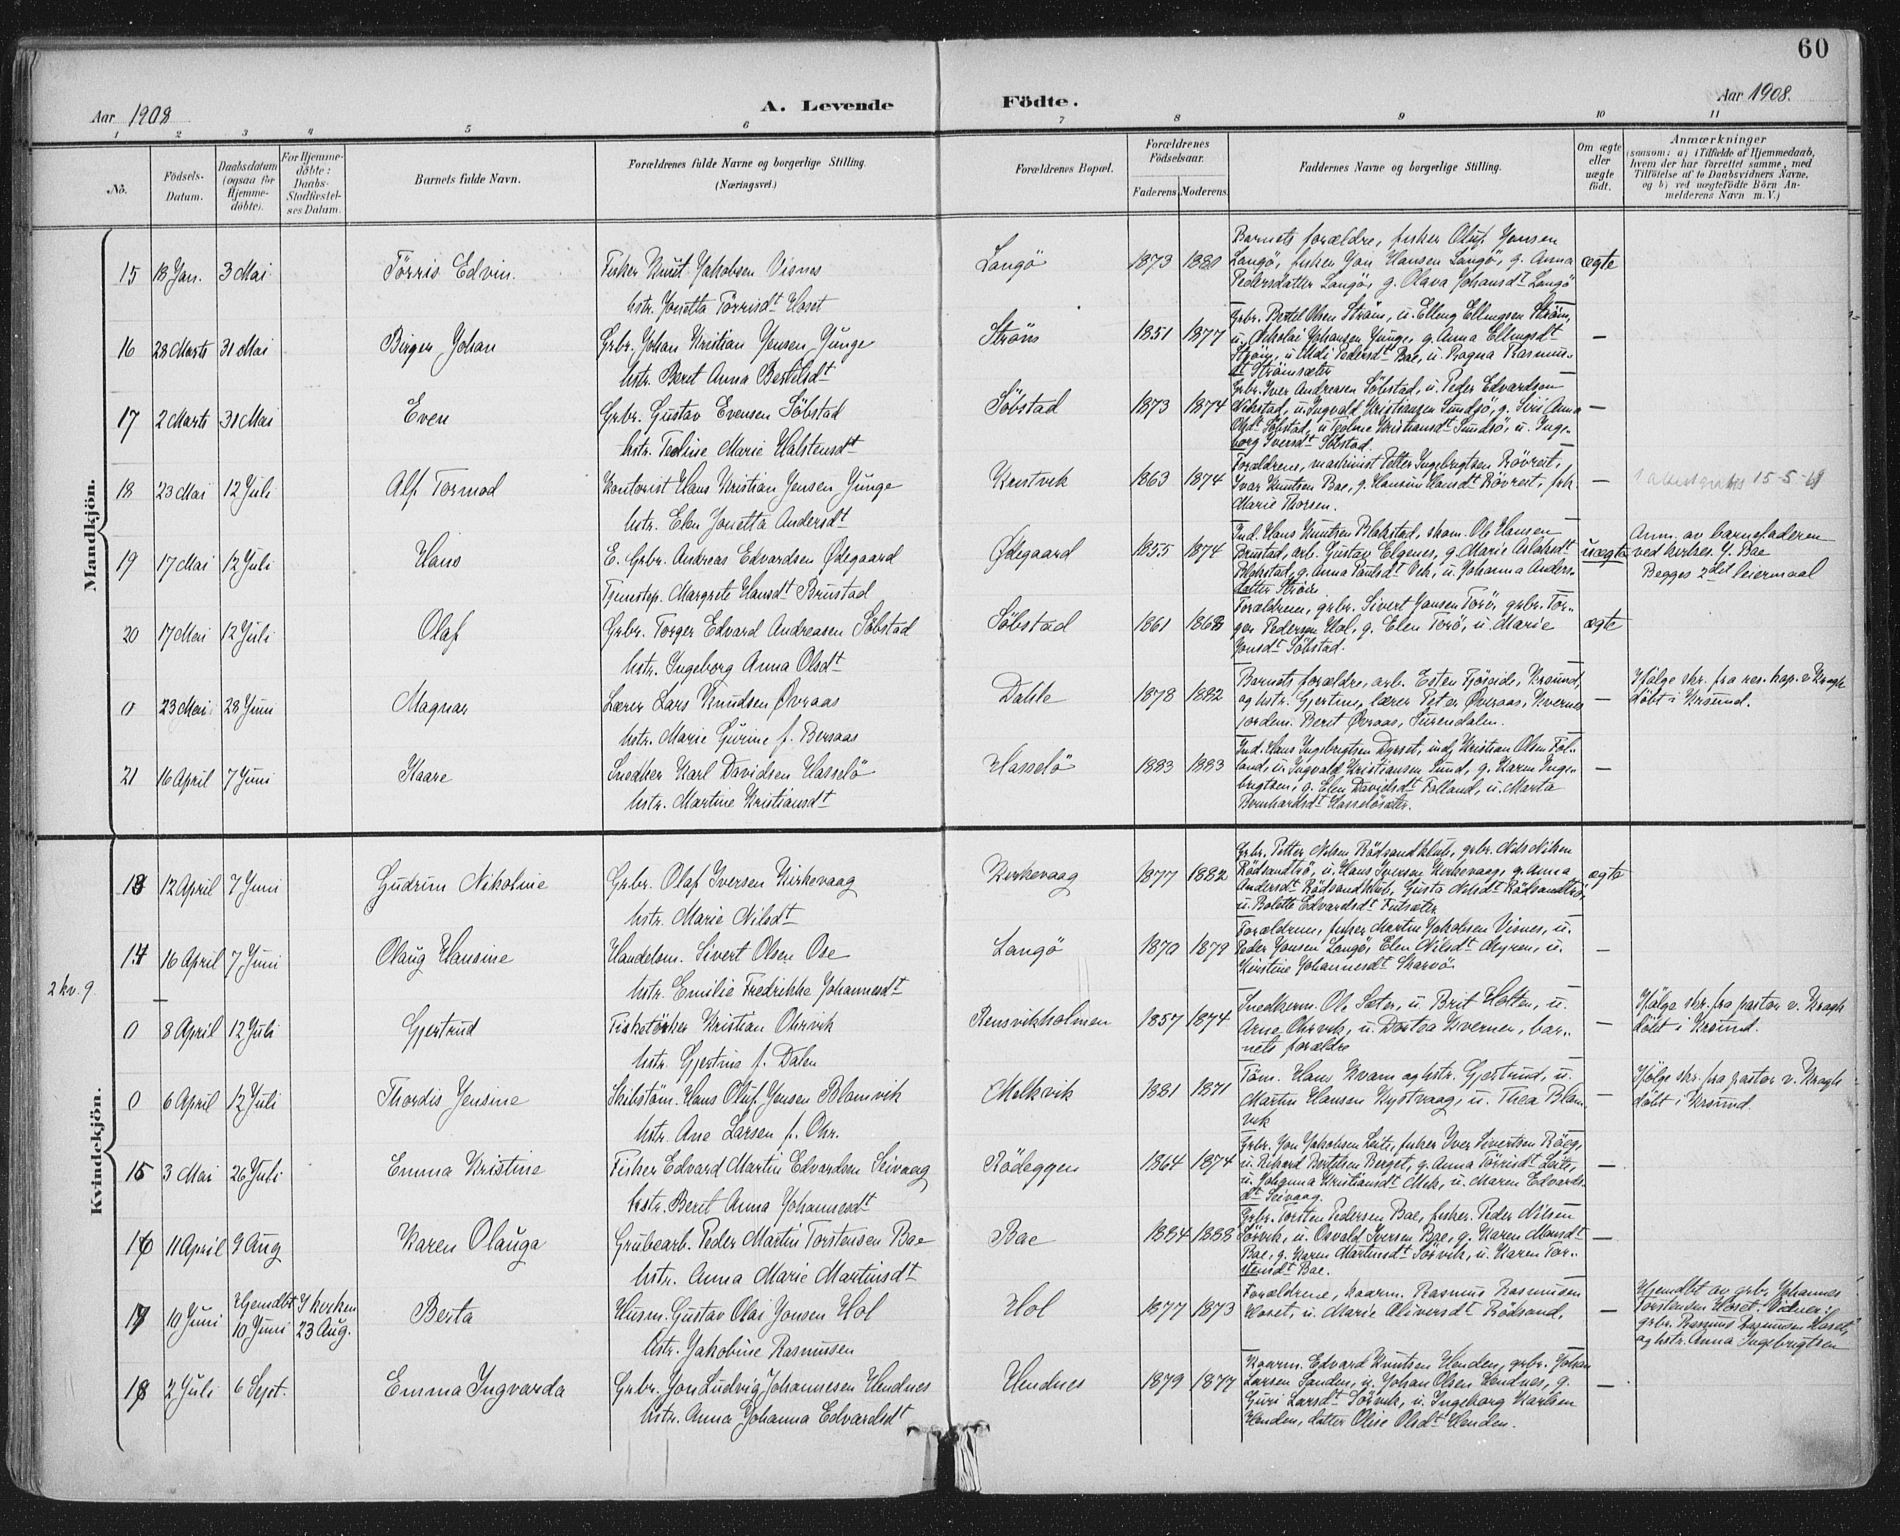 60
Aar 1908
A. Levende
Födte.
Aar 1908.
1 2 3 4 5 6 7 8 9 10 11
No.
Födsels-
Datum.
Daabsdatum
(ogsaa for
Hjemme-
döbte).
For Hjemme-
döbte:
Daabs-
Stadfæstel-
ses Datum.
Barnets fulde Navn.
Forældrenes fulde Navne og borgerlige Stilling.
(Næringsvei.)
Forældrenes Bopæl.
Forældrenes
Födselsaar.
Faderens. Moderens.
Faddernes Navne og borgerlige Stilling.
Om ægte
eller
uægte
födt.
Anmærkninger
(saasom: a) i Tilfælde af Hjemmedaab,
hvem der har forrettet samme, med
Tilföielse af to Daabsvidners Navne,
og b) ved uægtefödte Börn An-
melderens Navn m. V.)
Mandkjön.
15 18 Jan. 3 Mai Törris Edvin. Fisker Knut Jakobsen Visnes
hstr. Jonetta Törrisdt Hoset
Langö 1873 1880
Barnets forældre, fisker Oluf Jonsen
Langö, fisker Jon Hansen Langö, g. Anna
Pedersdatter Langö, g. Olava Johansdt Langö
ægte
16 28 Marts 31 Mai Birger Johan Grbr. Johan Kristian Jensen Junge
hstr. Berit Anna Bertilsdt
Ström 1851 1877
Grbr. Bertel Olsen Ström, u. Elling Ellingsen Ström,
u. Nikolai Johansen Junge, g. Anna Ellingsdt
Ström, u. Pedersdt Bae, u. Ragna Rasmus-
dt Strömsæter
—
17 2 Marts 31 Mai Even Grbr. Gustav Evensen Söbstad
hstr. Teline Marie Halstensdt
Söbstad 1873 1874
Grbr. Iver Andreasen Söbstad, u. Peder Edvardsen
Nikstad, u. Ingvald Kristiansen Sundsö, g. Siri Anna
Olsdt Söbstad, u. Kristiansdt Sundsö, u. Inge-
borg Iversdt Söbstad.
—
18 23 Mai 12 Juli Alf Tormod Kontorist Hans Kristian Jensen Junge
hstr. Elen Jonetta Andersdt
Knstvik 1863 1874
Forældrene, maskinist Petter Ingebrigtsen Rövreit,
Ivar Knutsen Bae, g. Hansine Hansdt Rövreit, frk.
Marie Thorsen.
— 15-5-
19 17 Mai 12 Juli Hans E. Grbr. Andreas Edvardsen Ödegaard
Tjenestep. Margrete Hansdt Brustad
Ødegaard 1855 1874
Ind. Hans Knutsen Blakstad, skom. Ole Hansen
Brustad, arb. Gustav Elgenes, g. Marie Aslaksdt
Blakstad, g. Anna Paulsdt Vik, u. Johanna Anders-
datter Ström
uægte
Anm. av barnefaderen
ved kirkes. J. Bae
Begges 2det leiermaal
20 17 Mai 12 Juli Olaf Grbr. Torger Edvard Andreasen Söbstad
hstr. Ingeborg Anna Olsdt
Söbstad 1861 1868
Forældrene, grbr. Sivert Jansen Torö, grbr. Tor-
ger Pedersen Hol, g. Elen Torö, u. Marie
Jonsdt Söbstad.
ægte
0 23 Mai 28 Juni Magnar Lærer Lars Knudsen Øvraas
hstr. Marie Gurine f. Bersaas
Dahle 1878 1882
Barnets forældre, arb. Esten Fjöseide, Krsund,
og hstr. Gjertine, lærer Peter Øvraas, Kvernes
jordem. Berit Øvraas, Surendalen.
—
Ifölge skr. fra res. kap. v. Kragh
döbt i Krsund.
21 16 April 7 Juni Kaare Snedker Karl Davidsen Hasselö
hstr. Martine Kristiansdt
Hasselö 1883 1883
Ind. Hans Ingebrigtsen Dyrset, ind. Kristian Olsen Fol-
land, u. Ingvald Kristiansen Sund, g. Karen Inge-
brigtsen, g. Elen Davidsdt Folland, u. Marta
Bernhardsdt Hasselösæter.
—
Kvindekjön.
13 12 April 7 Juni Gudrun Nikoline Grbr. Olaf Iversen Kirkevaag
hstr. Marie Nilsdt
Kirkevaag 1877 1882
Grbr. Petter Nilsen Rödsandklub, grbr. Nils Nilsen
Rödsandtrö, u. Hans Iversen Kirkevaag, g. Anna
Andersdt Rödsandklub, Gusta Nilsdt Rödsandtrö,
u. Bolette Edvardsdt Futsæter
ægte
14 16 April 7 Juni Olaug Hansine Handelsm. Sivert Olsen Ose
hstr. Emilie Fredrikke Johannesdt
Langö 1870 1879
Forældrene, fisker Martin Jakobsen Visnes, u.
Peder Jonsen Langö, Elen Nilsdt Myren, u.
Kirstine Johannesdt Skarvö.
—
2 kv. 9
0 8 April 12 Juli Gjertrud Fisketörker Kristian Ohrvik
hstr. Gjertine f. Dalen
Rensvikholmen 1857 1874
Snedkerm. Ole Sæter, u. Brit Holten, u.
Arne Ohrvik, u. Dortea Kverner, bar-
nets forældre
—
Ifölge skr. fra pastor v. Kragh
döbt i Krsund.
0 6 April 12 Juli Thordis Jensine Skibstöm. Hans Oluf Jensen Blamvik
hstr. Ane Larsen f. Ohr.
Melkvik 1881 1871
Töm. Hans Kvam og hstr. Gjertrud, u.
Martin Hansen Nystvaag, u. Thea Blam-
vik
—
Ifölge skr. fra pastor v. Kragh
döbt i Krsund.
15 3 Mai 26 Juli Emma Kristine Fisker Edvard Martin Edvardsen Seivaag
hstr. Beret Anna Johannesdt
Rödeggen 1864 1874
Grbr. Jon Jakobsen Leite, fisker Iver Sivertsen Röeg,
u. Rikard Bertelsen Berget, g. Anna Törrisdt Leite,
u. Johanna Kristiansdt Mek, u. Maren Edvards-
dt Seivaag.
—
16 11 April 9 Aug Karen Olauga Grubearb. Peder Martin Torstensen Bae
hstr. Anna Marie Martinsdt
Bae 1884 1888
Grbr. Torsten Pedersen Bae, fisker Peder Nilsen
Sörvik, u. Osvald Iversen Bae, g. Karen Monsdt
Bae, g. Karen Martinsdt Sörvik, u. Karen Tor-
stensdt Bae.
—
17 10 Juni Hjemdbt
10 Juni
I kirken
23 Aug.
Berta Husm. Gustav Olai Jonsen Hol
hstr. Jakobine Rasmussen
Hol 1877 1873
Forældrene, kaarm. Rasmus Rasmussen
Hoset, u. Marie Oliversdt Rödsand.
—
Hjemdbt av grbr. Johannes
Torstensen Hoset. Vidner:
grbr. Rasmus Rasmussen Hoset,
og hstr. Anna Ingebrigtsen
18 2 Juli 6 Sept. Emma Ingvarda Grbr. Jon Ludvig Johannesen Hendnes
hstr. Anna Johanna Edvardsdt
Hendnes 1879 1877
Kaarm. Edvard Knutsen Henden, grbr. Johan
Larsen Sanden, u. Johan Olsen Hendnes, g.
Guri Larsdt Sörvik, u. Ingeborg Karlsen
Henden, datter Olise Olsdt Henden.
—